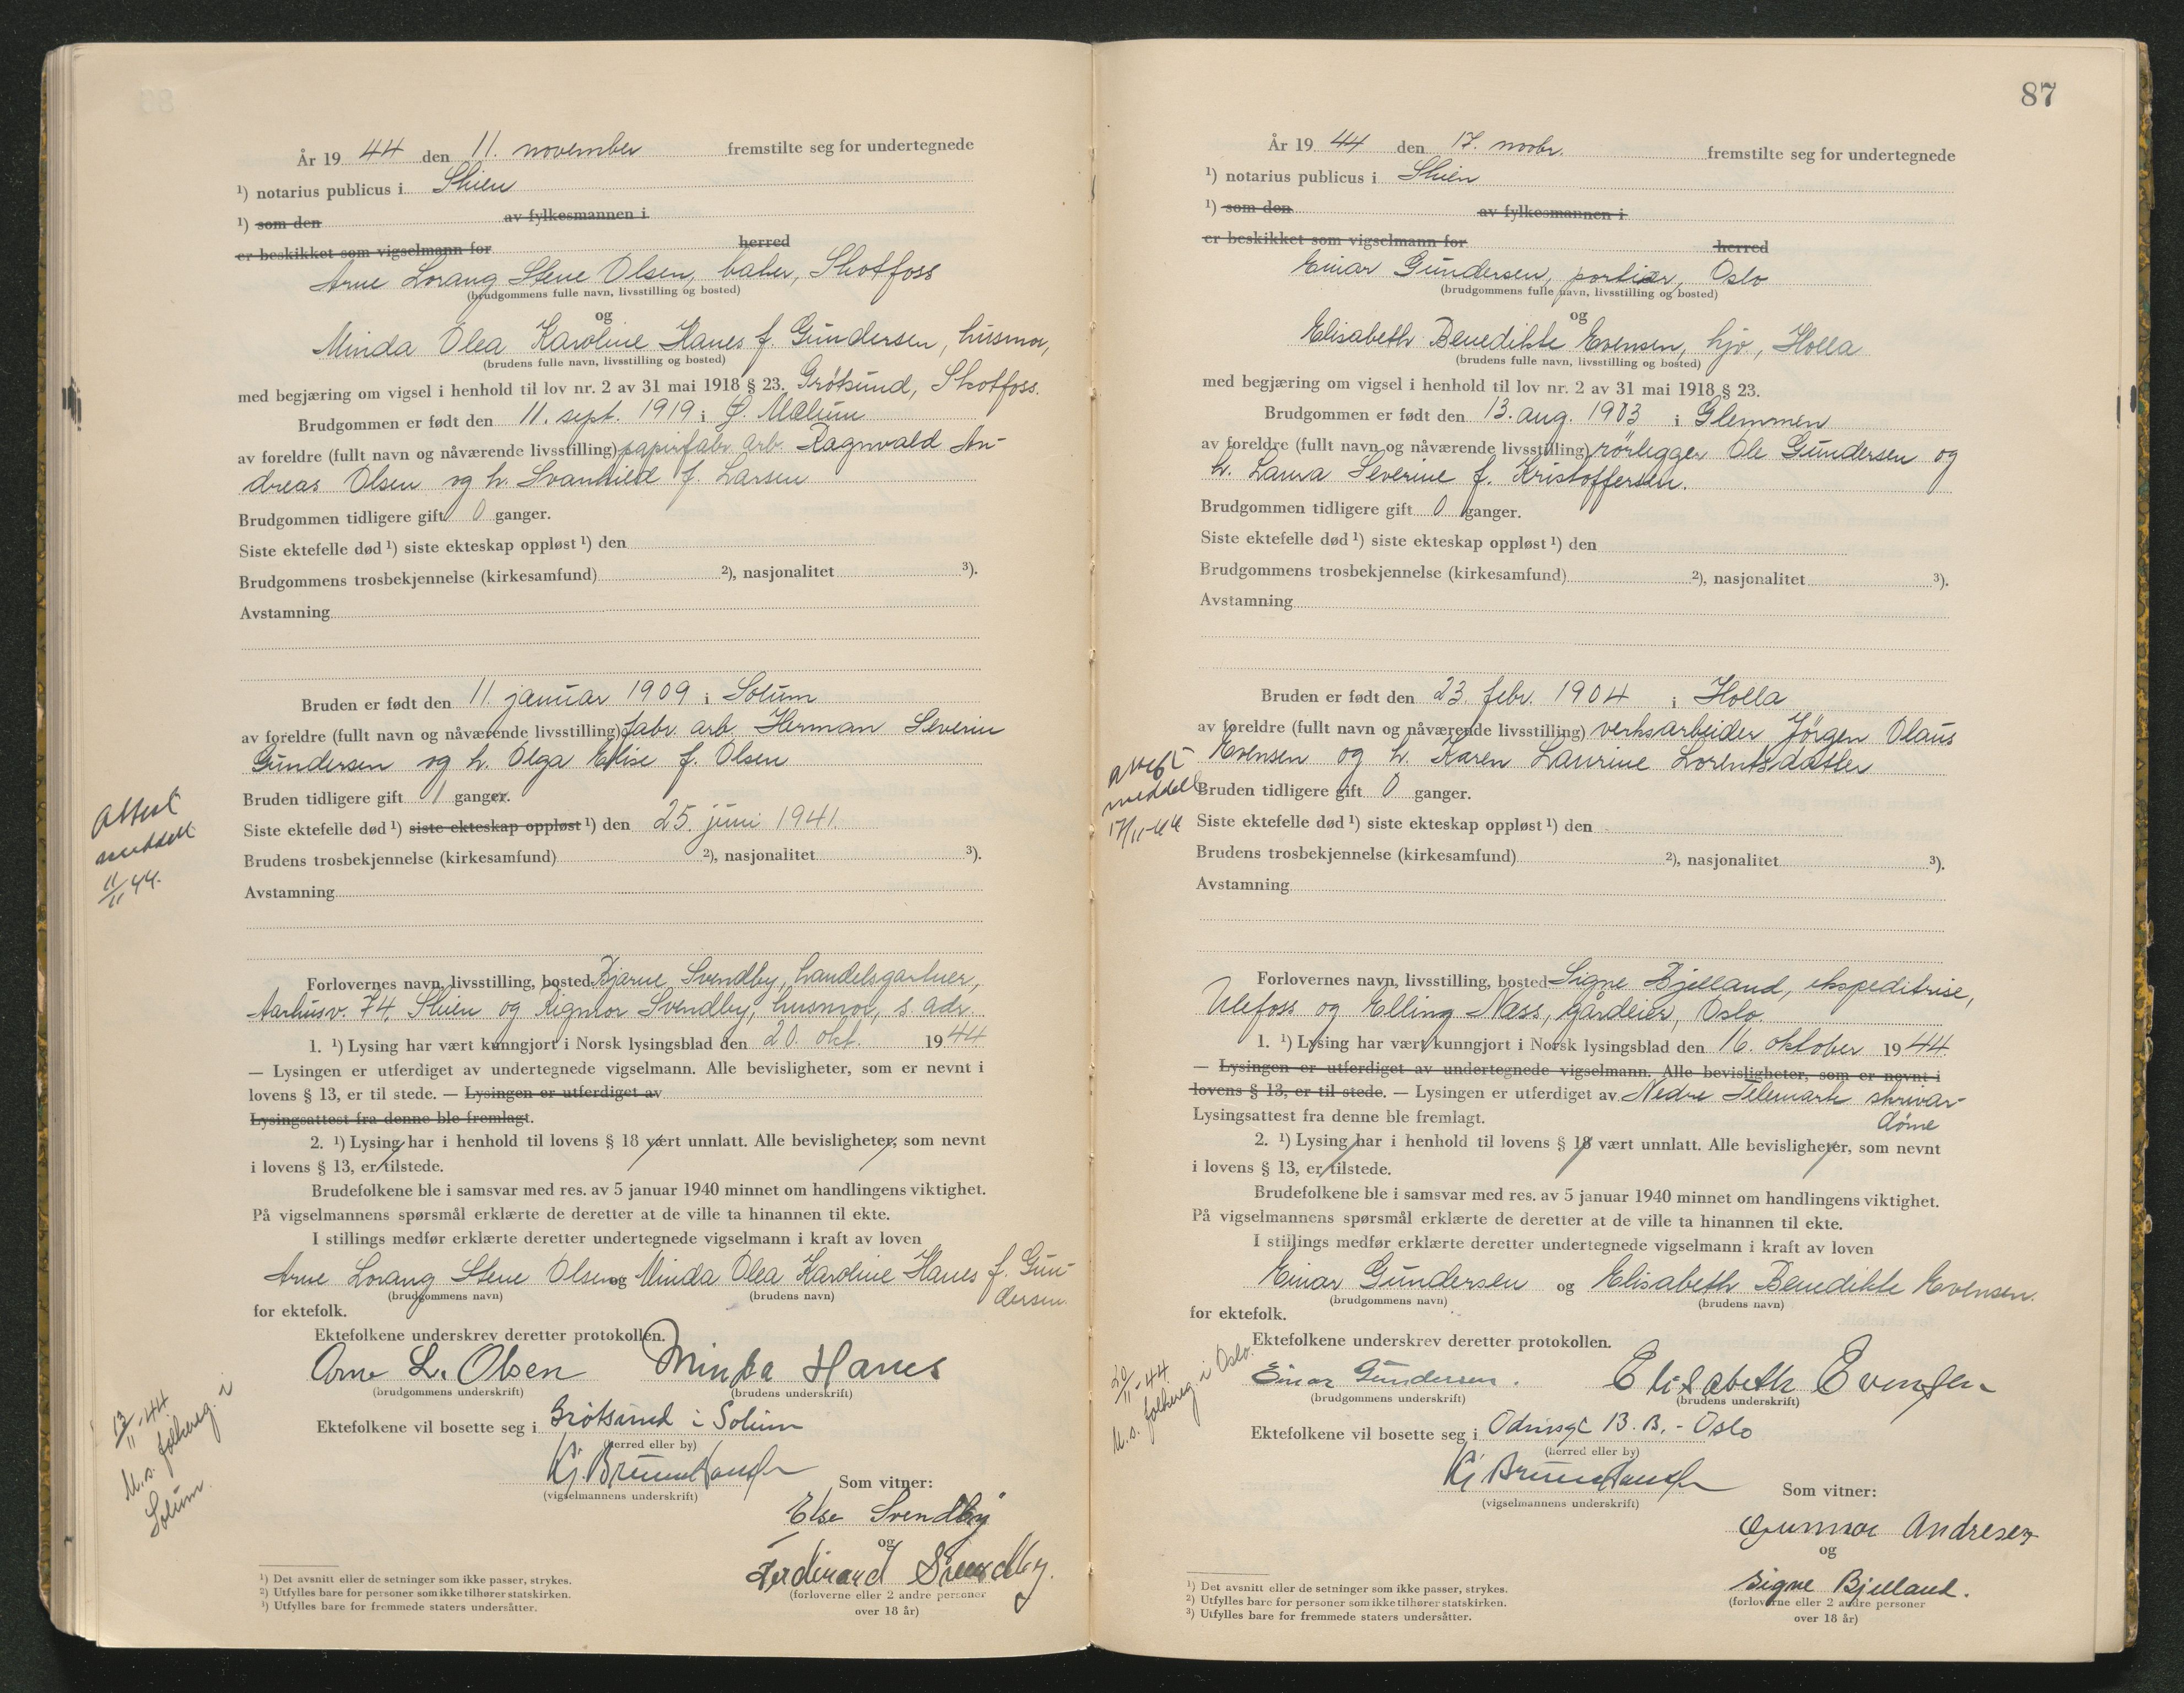 År 19 44 den 11. november fremstilte seg for undertegnede
¹) notarius publicus i Skien
¹) som den av fylkesmannen i
er beskikket som vigselmann for herred
Arne Lorang Stene Olsen, baker, Skotfoss
(brudgommens fulle navn, livsstilling og bosted)
og
Minda Olea Karoline Hanes f. Gundersen, husmor,
(brudens fulle navn, livsstilling og bosted)
med begjæring om vigsel i henhold til lov nr. 2 av 31 mai 1918 § 23. Grötsund, Skotfoss.
Brudgommen er født den 11. sept. 1919 i Ø. Mælum
av foreldre (fullt navn og nåværende livsstilling) papirfabr. arb. Ragnvald An-
dreas Olsen og h. Svanhild f. Larsen
Brudgommen tidligere gift 0 ganger.
Siste ektefelle død ¹) siste ekteskap oppløst ¹) den
Brudgommens trosbekjennelse (kirkesamfund) ²), nasjonalitet ³).
Avstamning
Bruden er født den 11. januar 1909 i Solum
av foreldre (fullt navn og nåværende livsstilling) fabr. arb. Herman Severin
Gundersen og h. Olga Elise f. Olsen
Bruden tidligere gift 1 ganger.
Siste ektefelle død ¹) siste ekteskap oppløst ¹) den 25. juni 1941.
Brudens trosbekjennelse (kirkesamfund) ²), nasjonalitet ³).
Avstamning
Attest
meddelt
11/11 44.
Forlovernes navn, livsstilling, bosted Bjarne Svendby, handelsgartner,
Aarhusv. 74, Skien og Rigmor Svendby, husmor, s. adr.
1. ¹) Lysing har vært kunngjort i Norsk lysingsblad den 20. okt. 19 44
— Lysingen er utferdiget av undertegnede vigselmann. Alle bevisligheter, som er nevnt i
lovens § 13, er til stede. — Lysingen er utferdiget av
Lysingsattest fra denne ble fremlagt.
2. ¹) Lysing har i henhold til lovens § 18 vært unnlatt. Alle bevisligheter, som nevnt
i lovens § 13, er tilstede.
Brudefolkene ble i samsvar med res. av 5 januar 1940 minnet om handlingens viktighet.
På vigselmannens spørsmål erklærte de deretter at de ville ta hinannen til ekte.
I stillings medfør erklærte deretter undertegnede vigselmann i kraft av loven
Arne Lorang Stene Olsen og Minda Olea Karoline Hanes f. Gun-
dersen
(brudgommens navn) (brudens navn)
for ektefolk.
Ektefolkene underskrev deretter protokollen.
Arne L. Olsen Minda Hanes
(brudgommens underskrift) (brudens underskrift)
Ektefolkene vil bosette seg i Grötsund i Solum
(herred eller by)
(vigselmannens underskrift)
Som vitner:
Else Svendby
og
Ferdinand Svendby.
(forloverne eller 2 andre personer
over 18 år)
13/11-44.
M.s. folkereg. i
Solum.
¹) Det avsnitt eller de setninger som ikke passer, strykes.
²) Utfylles bare for personer som ikke tilhører statskirken.
³) Utfylles bare for fremmede staters undersåtter.
87
År 19 44 den 17. novbr. fremstilte seg for undertegnede
¹) notarius publicus i Skien
¹) som den av fylkesmannen i
er beskikket som vigselmann for herred
Einar Gundersen, portier, Oslo
(brudgommens fulle navn, livsstilling og bosted)
og
Elisabeth Benedikte Evensen, hjv, Holla
(brudens fulle navn, livsstilling og bosted)
med begjæring om vigsel i henhold til lov nr. 2 av 31 mai 1918 § 23.
Brudgommen er født den 13. aug. 1903 i Glemmen
av foreldre (fullt navn og nåværende livsstilling) rörlegger Ole Gundersen og
h. Laura Severine f. Kristoffersen.
Brudgommen tidligere gift 0 ganger.
Siste ektefelle død ¹) siste ekteskap oppløst ¹) den
Brudgommens trosbekjennelse (kirkesamfund) ²), nasjonalitet ³).
Avstamning
Bruden er født den 23. febr. 1904 i Holla
av foreldre (fullt navn og nåværende livsstilling) verksarbeider Jörgen Olaus
Evensen og h. Karen Laurine Lorentsdatter
Bruden tidligere gift 0 ganger.
Siste ektefelle død ¹) siste ekteskap oppløst ¹) den
Brudens trosbekjennelse (kirkesamfund) ²), nasjonalitet ³).
Avstamning
attest
meddelt
17/11-44
Forlovernes navn, livsstilling, bosted Signe Bjelland, ekspeditrise,
Ulefoss og Elling Næss, gårdeier, Oslo.
1. ¹) Lysing har vært kunngjort i Norsk lysingsblad den 16. oktober 19 44.
— Lysingen er utferdiget av undertegnede vigselmann. Alle bevisligheter, som er nevnt i
lovens § 13, er til stede. — Lysingen er utferdiget av Nedre Telemark skrivar-
döme
Lysingsattest fra denne ble fremlagt.
2. ¹) Lysing har i henhold til lovens § 18 vært unnlatt. Alle bevisligheter, som nevnt
i lovens § 13, er tilstede.
Brudefolkene ble i samsvar med res. av 5 januar 1940 minnet om handlingens viktighet.
På vigselmannens spørsmål erklærte de deretter at de ville ta hinannen til ekte.
I stillings medfør erklærte deretter undertegnede vigselmann i kraft av loven
Einar Gundersen og Elisabeth Benedikte Evensen.
(brudgommens navn) (brudens navn)
for ektefolk.
Ektefolkene underskrev deretter protokollen.
Einar Gundersen. Elisabeth Evensen
(brudgommens underskrift) (brudens underskrift)
Ektefolkene vil bosette seg i Odinsgt 13. B. - Oslo
(herred eller by)
(vigselmannens underskrift)
Som vitner:
Gunnar Andresen
og
Signe Bjelland.
(forloverne eller 2 andre personer
over 18 år)
20/11-44.
M.s. folkereg. i Oslo.
¹) Det avsnitt eller de setninger som ikke passer, strykes.
²) Utfylles bare for personer som ikke tilhører statskirken.
³) Utfylles bare for fremmede staters undersåtter.